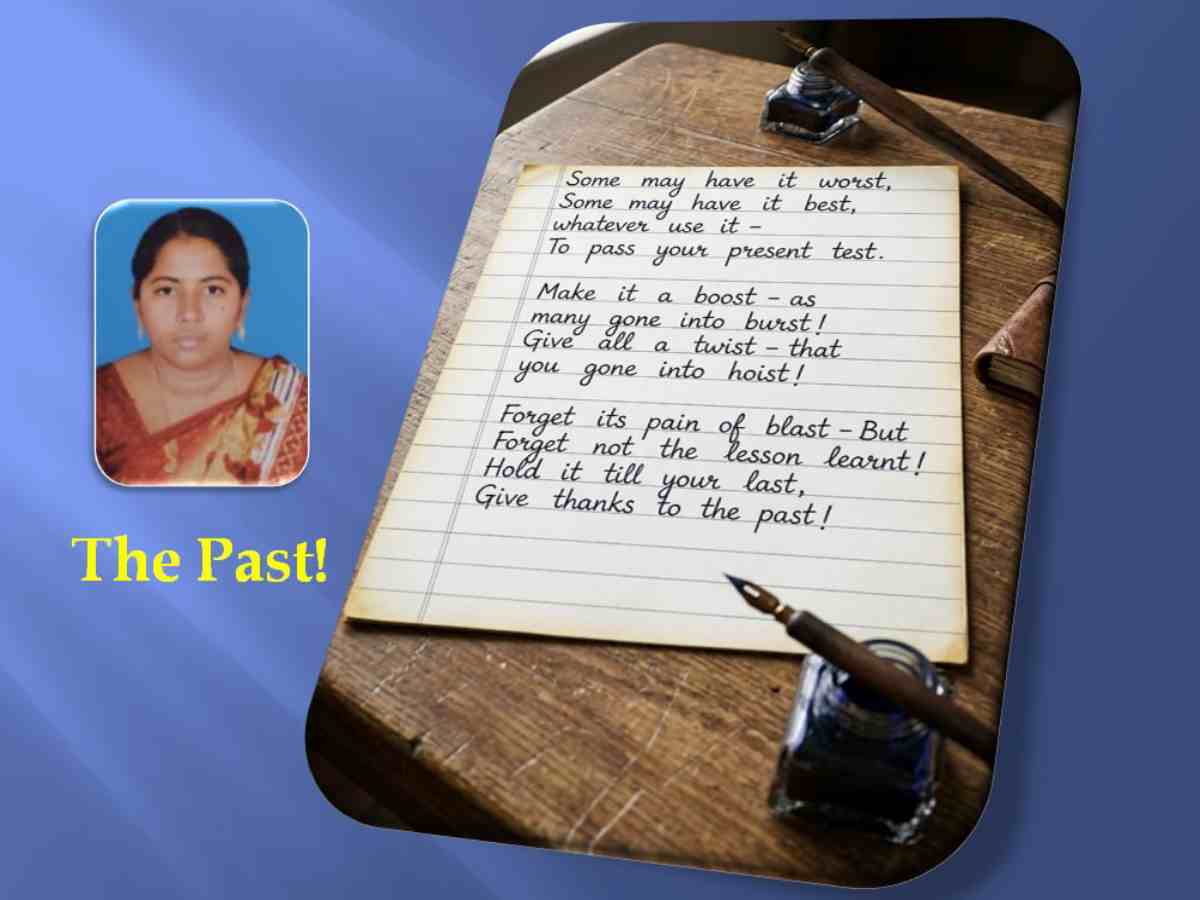 Some may have it worst,
Some may have it best,
whatever use it –
To pass your present test.
Make it a boost – as
many gone into burst!
Give all a twist – that
you gone into hoist!
Forget its pain of blast – But
Forget not the lesson learnt!
Hold it till your last,
Give thanks to the past!
The Past!